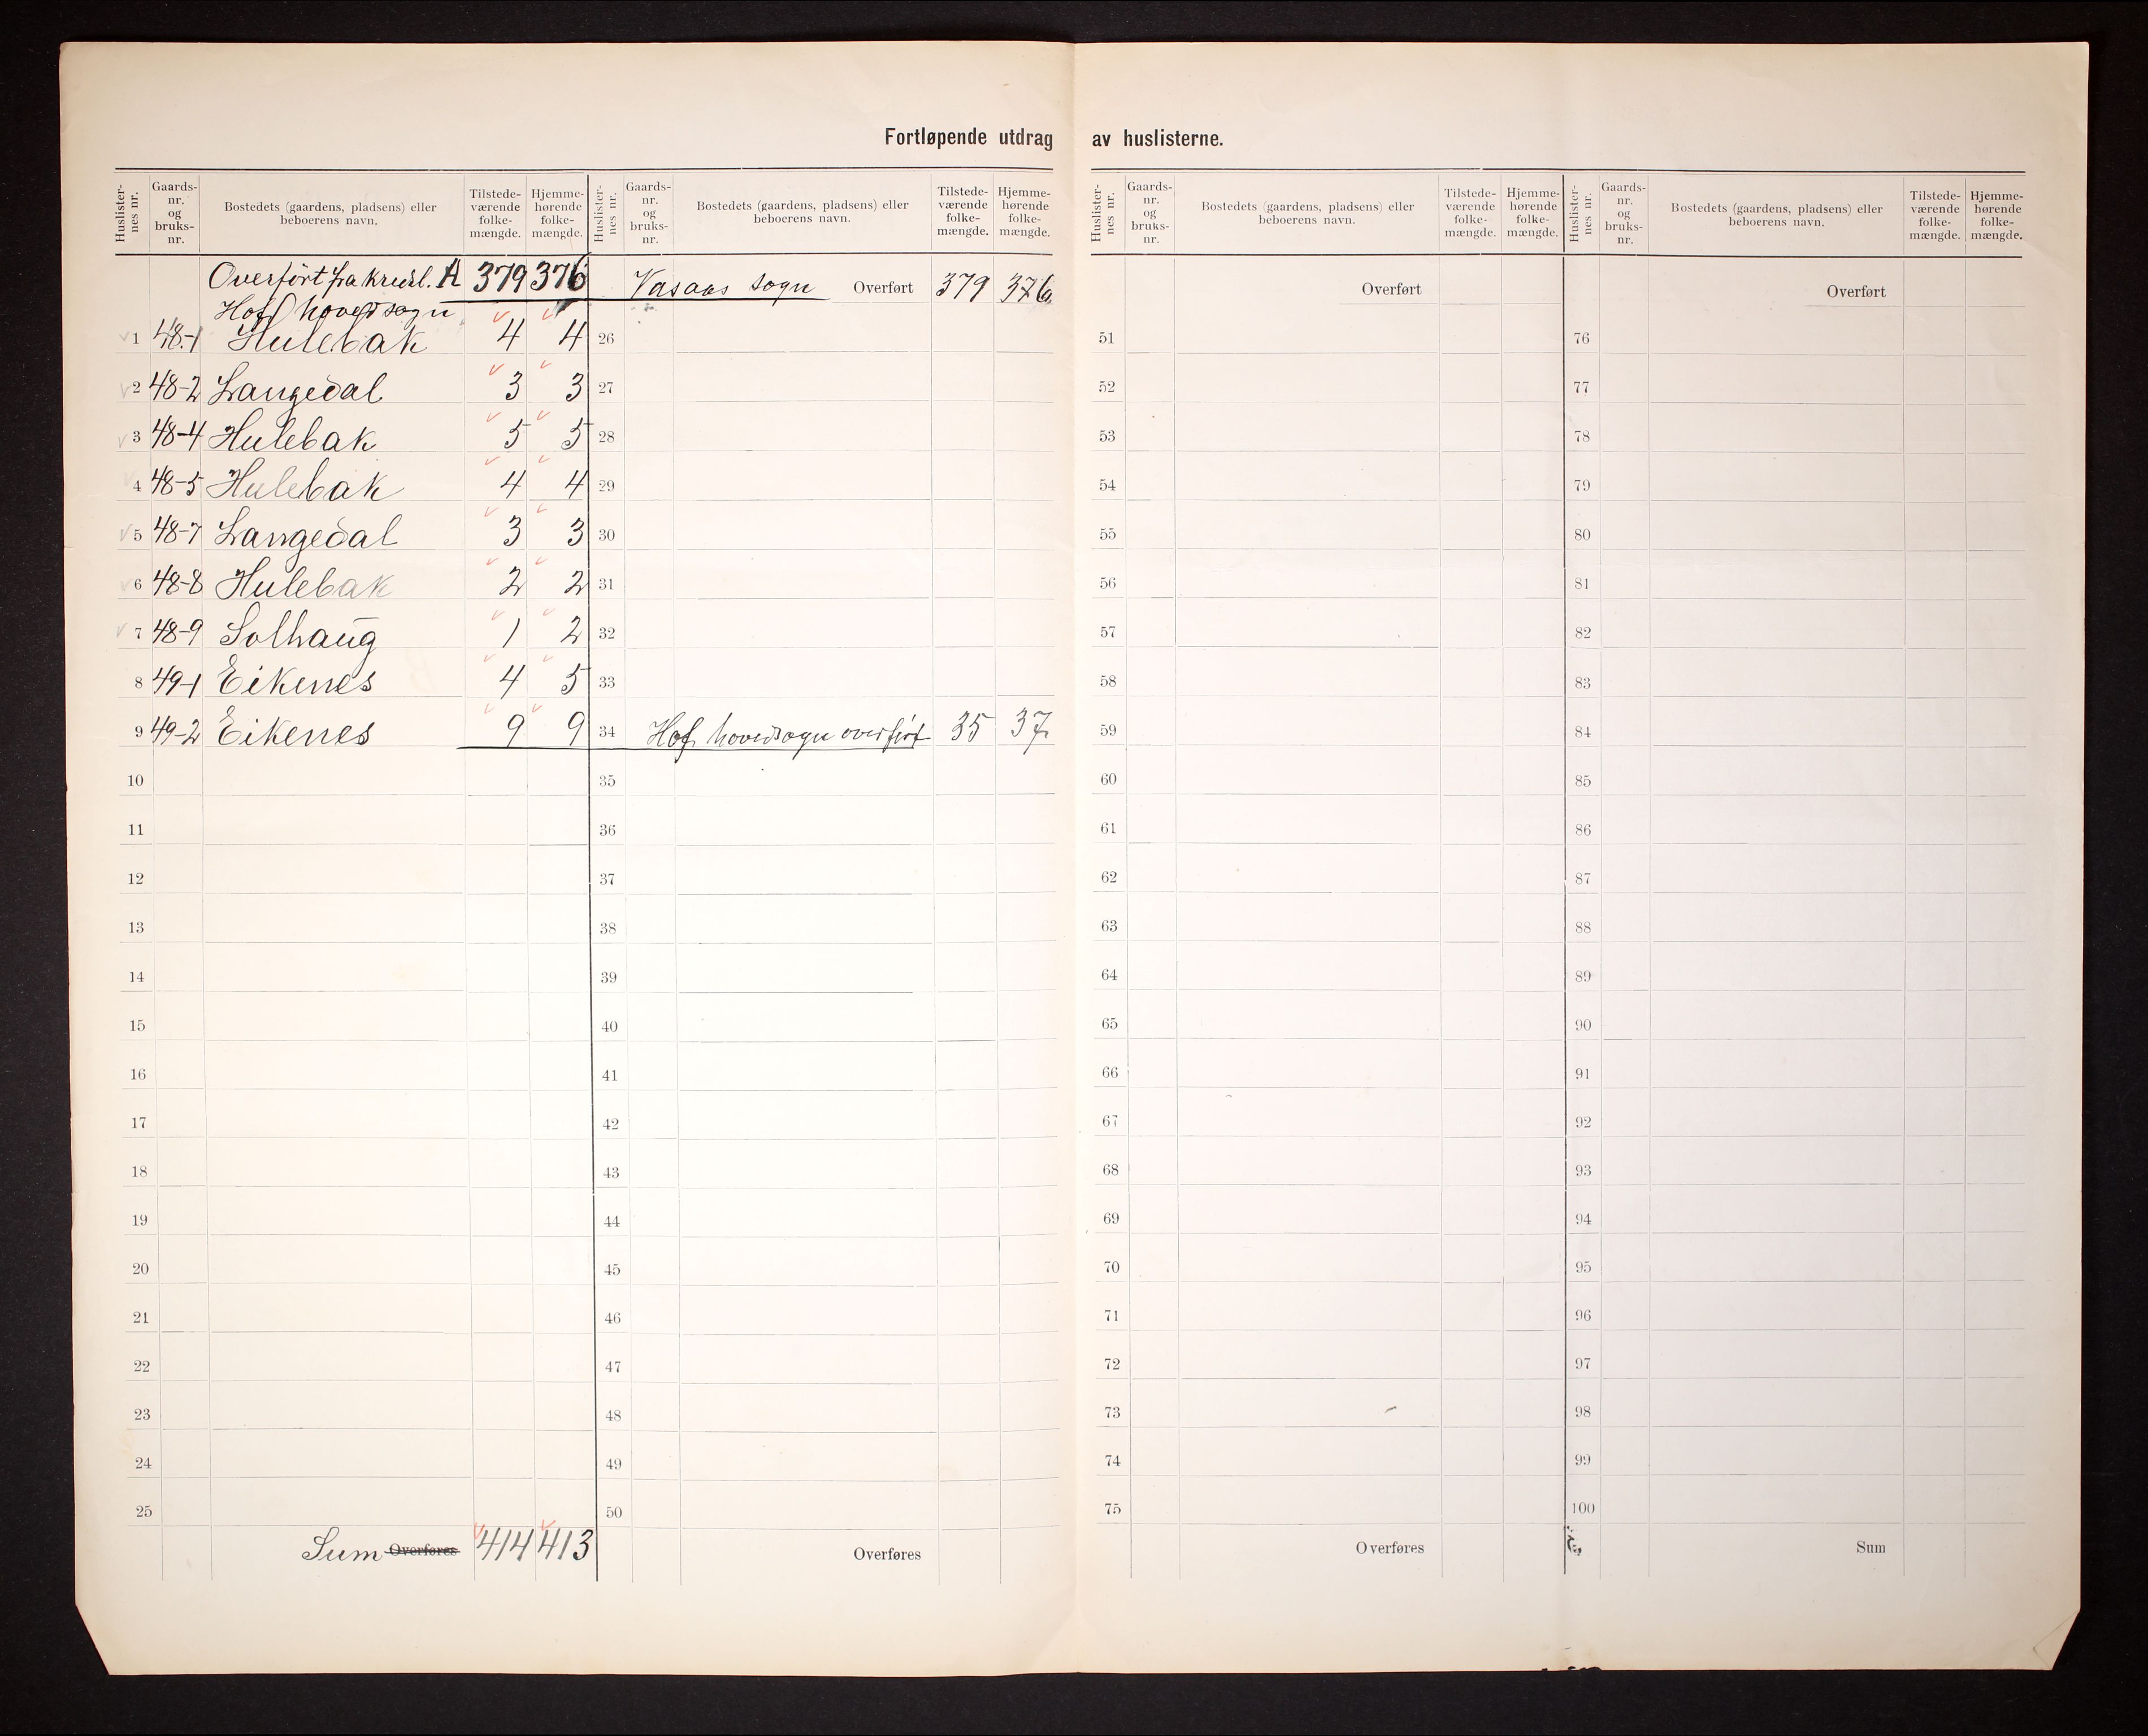 Fortløpende utdrag av huslisterne.
Huslisternes nr. Gaards-nr. og bruks-nr. Bostedets (gaardens, pladsens) eller beboerens navn. Tilstede-værende folke-mængde. Hjemme-hørende folke-mængde.
Overført fra kredsl. A 379 376
Hof hovedsogn
1 48-1 Hulebak 4 4
2 48-2 Langedal 3 3
3 48-4 Hulebak 5 5
4 48-5 Hulebak 4 4
5 48-7 Langedal 3 3
6 48-8 Hulebak 2 2
7 48-9 Solhaug 1 2
8 49-1 Eikenes 4 5
9 49-2 Eikenes 9 9
10
11
12
13
14
15
16
17
18
19
20
21
22
23
24
25
Sum Overføres 414 413
Huslisternes nr. Gaards-nr. og bruks-nr. Bostedets (gaardens, pladsens) eller beboerens navn. Tilstede-værende folke-mængde. Hjemme-hørende folke-mængde.
Vasaas sogn Overført 379 376
26
27
28
29
30
31
32
33
34 Hof hovedsogn overført 35 37
35
36
37
38
39
40
41
42
43
44
45
46
47
48
49
50
Overføres
Huslisternes nr. Gaards-nr. og bruks-nr. Bostedets (gaardens, pladsens) eller beboerens navn. Tilstede-værende folke-mængde. Hjemme-hørende folke-mængde.
Overført
51
52
53
54
55
56
57
58
59
60
61
62
63
64
65
66
67
68
69
70
71
72
73
74
75
Overføres
Huslisternes nr. Gaards-nr. og bruks-nr. Bostedets (gaardens, pladsens) eller beboerens navn. Tilstede-værende folke-mængde. Hjemme-hørende folke-mængde.
Overført
76
77
78
79
80
81
82
83
84
85
86
87
88
89
90
91
92
93
94
95
96
97
98
99
100
Sum